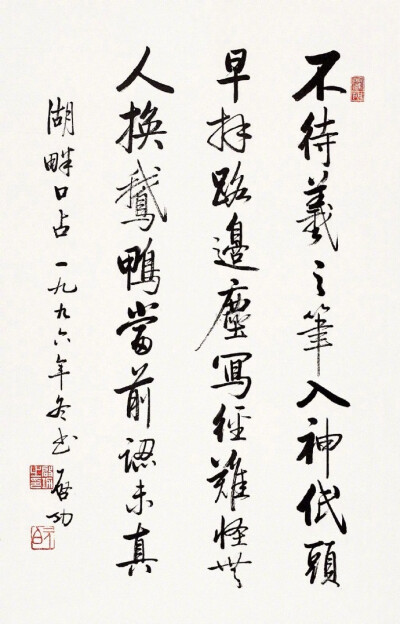 不待羲之筆入神低頭
早拜路邊塵寫經難怪無
人換鵝鴨當前認未真
湖畔口占一九九六年冬书 启功
元白